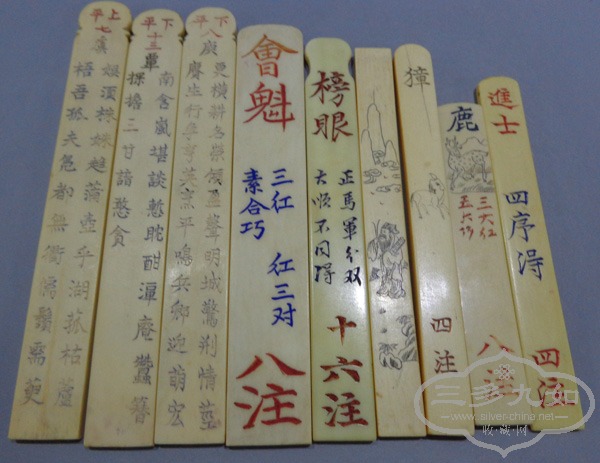 上平
七虞
須株姝趨蒲壺乎湖菰枯蘆
梧吾孤夫都無衢儒鬚需萸
下平
十三覃
南含嵐堪談酣潭庵蠶簪
探擔三甘諳憨貪
下平
八庚
更橫耕名傾盈明城驚荆情
賡生行争亨英京平鳴兵卿迎萌宏
會魁
三紅 紅三对
素合巧
八注
榜眼
正馬軍分双
大順不同得
十六注
獐
四注
鹿
三大红
五六巧
八注
進士
四序得
四注
三多九如
www.silver-china.net
收·藏·网